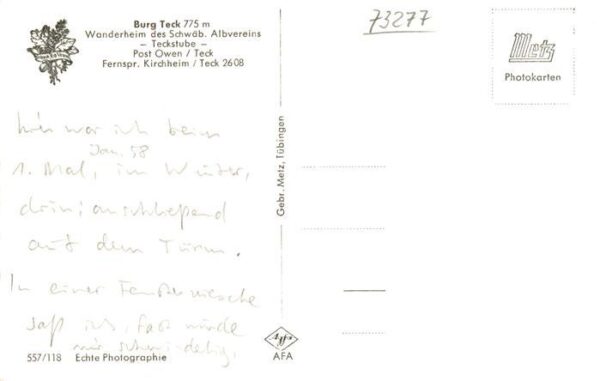 Burg Teck 775 m
Wanderheim des Schwäb. Albvereins
– Teckstube –
Post Owen / Teck
Fernspr. Kirchheim / Teck 2608
73277
Metz
Photokarten
hier war ich beim
Jan. 58
1. Mal, im Winter,
drin; anschließend
auf dem Turm.
In einer Fensternische
saß ich, fast wurde
mir schwindelig.
Gebr. Metz, Tübingen
557/118 Echte Photographie
Agfa
AFA